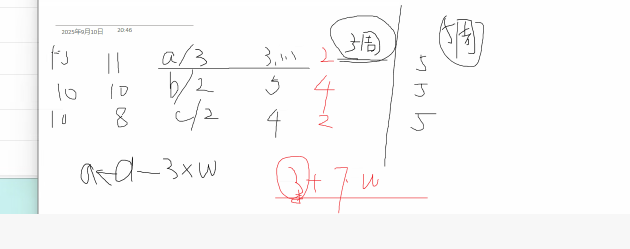 2025年9月10日 20:46
11 a/3 3,11 2 3周 5 5周
10 10 b/2 5 4 5
10 8 c/2 4 2 5
a←d-3×w
3+7w